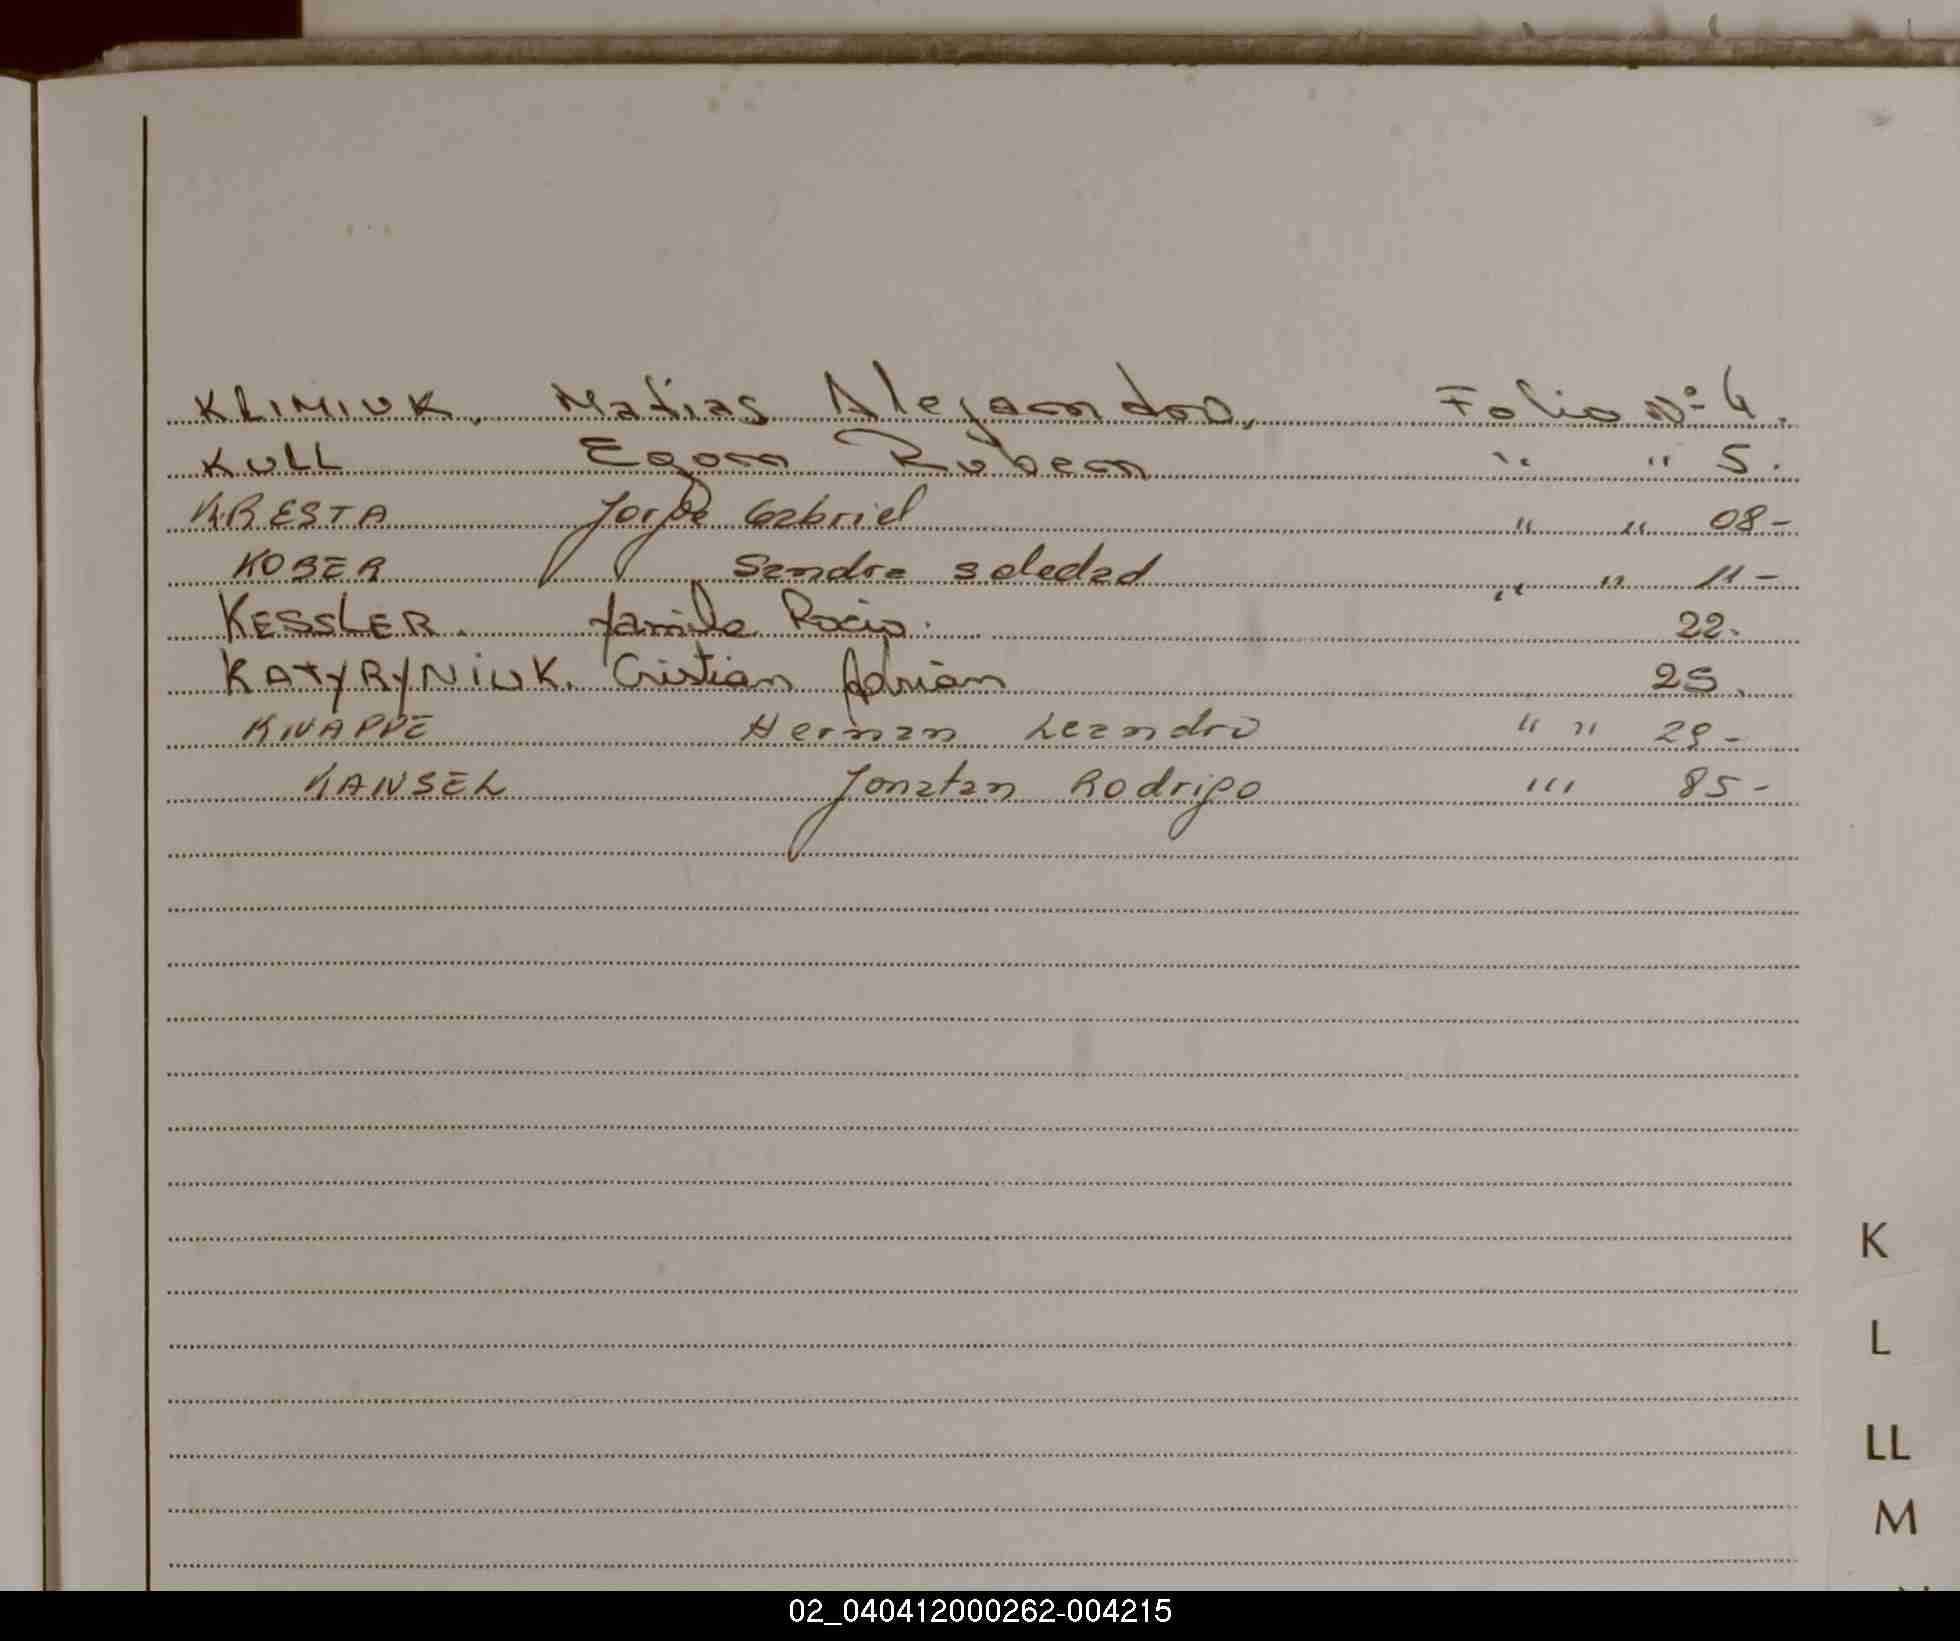 KLIMIUK, Matias Alejandro, Folio Nº 4.
KULL Egon Ruben " " 5.
KRESTA Jorge Gabriel " " 08-
KOBER Sandra Soledad " " 11-
KESSLER. Yamila Rocio. 22.
KATYRYNIUK. Cristian Adrián 25.
KNAPPE Hernan Leandro " " 29-
KANSEL Jonatan Rodrigo ''' 85-
K
L
LL
M
02_040412000262-004215